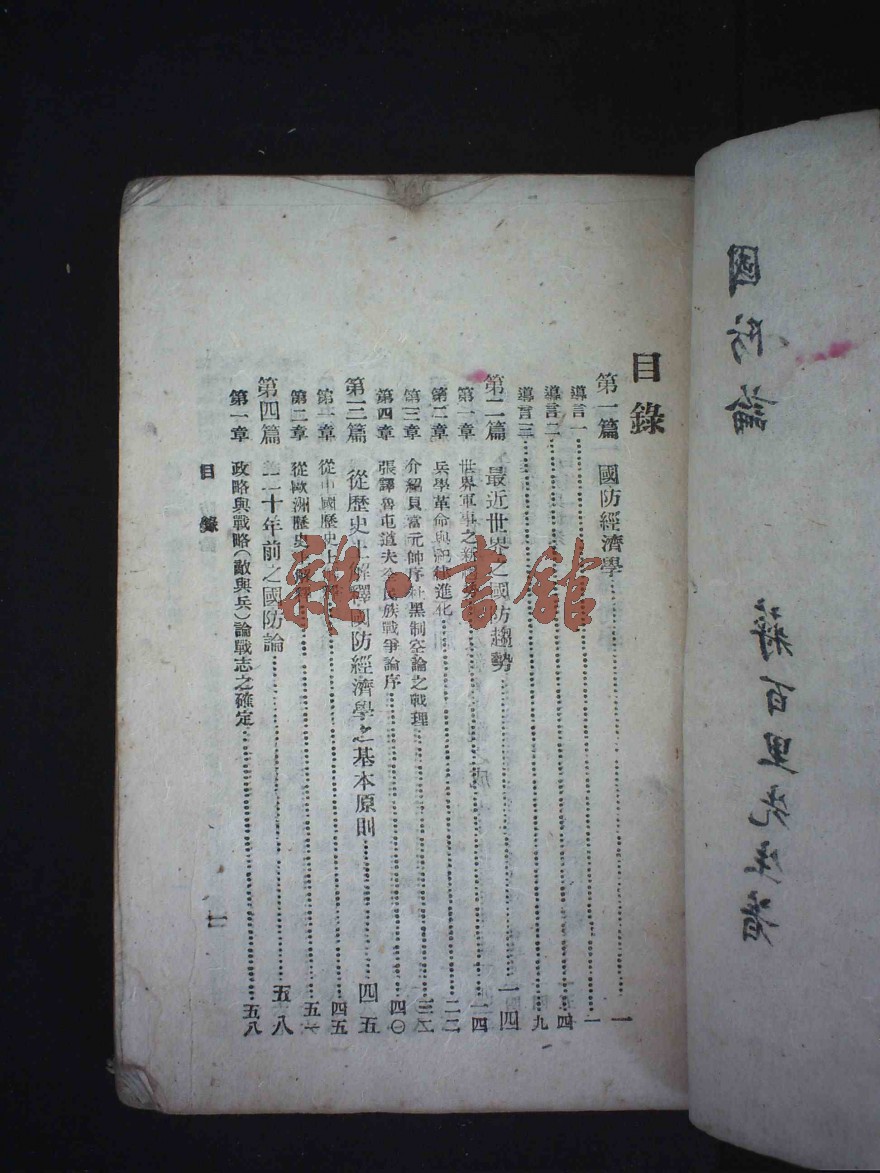 國防論
蔣百里先生著
目錄
第一篇 國防經濟學 一
導言一 一
導言二 四
導言三 九
第二篇 最近世界之國防趨勢 一四
第一章 世界軍事之新 一四
第二章 兵學革命與紀律進化 二二
第三章 介紹貝當元帥序杜黑制空論之戰理
第四章 張譯魯屯道夫全民族戰爭論序 四〇
第三篇 從歷史上解釋國防經濟學之基本原則 四五
第一章 從中國歷史上 四五
第二章 從歐洲歷史上解釋 五
第四篇 二十年前之國防論 五八
第一章 政略與戰略(敵與兵)論戰志之確定 五八
目錄
雜·書館